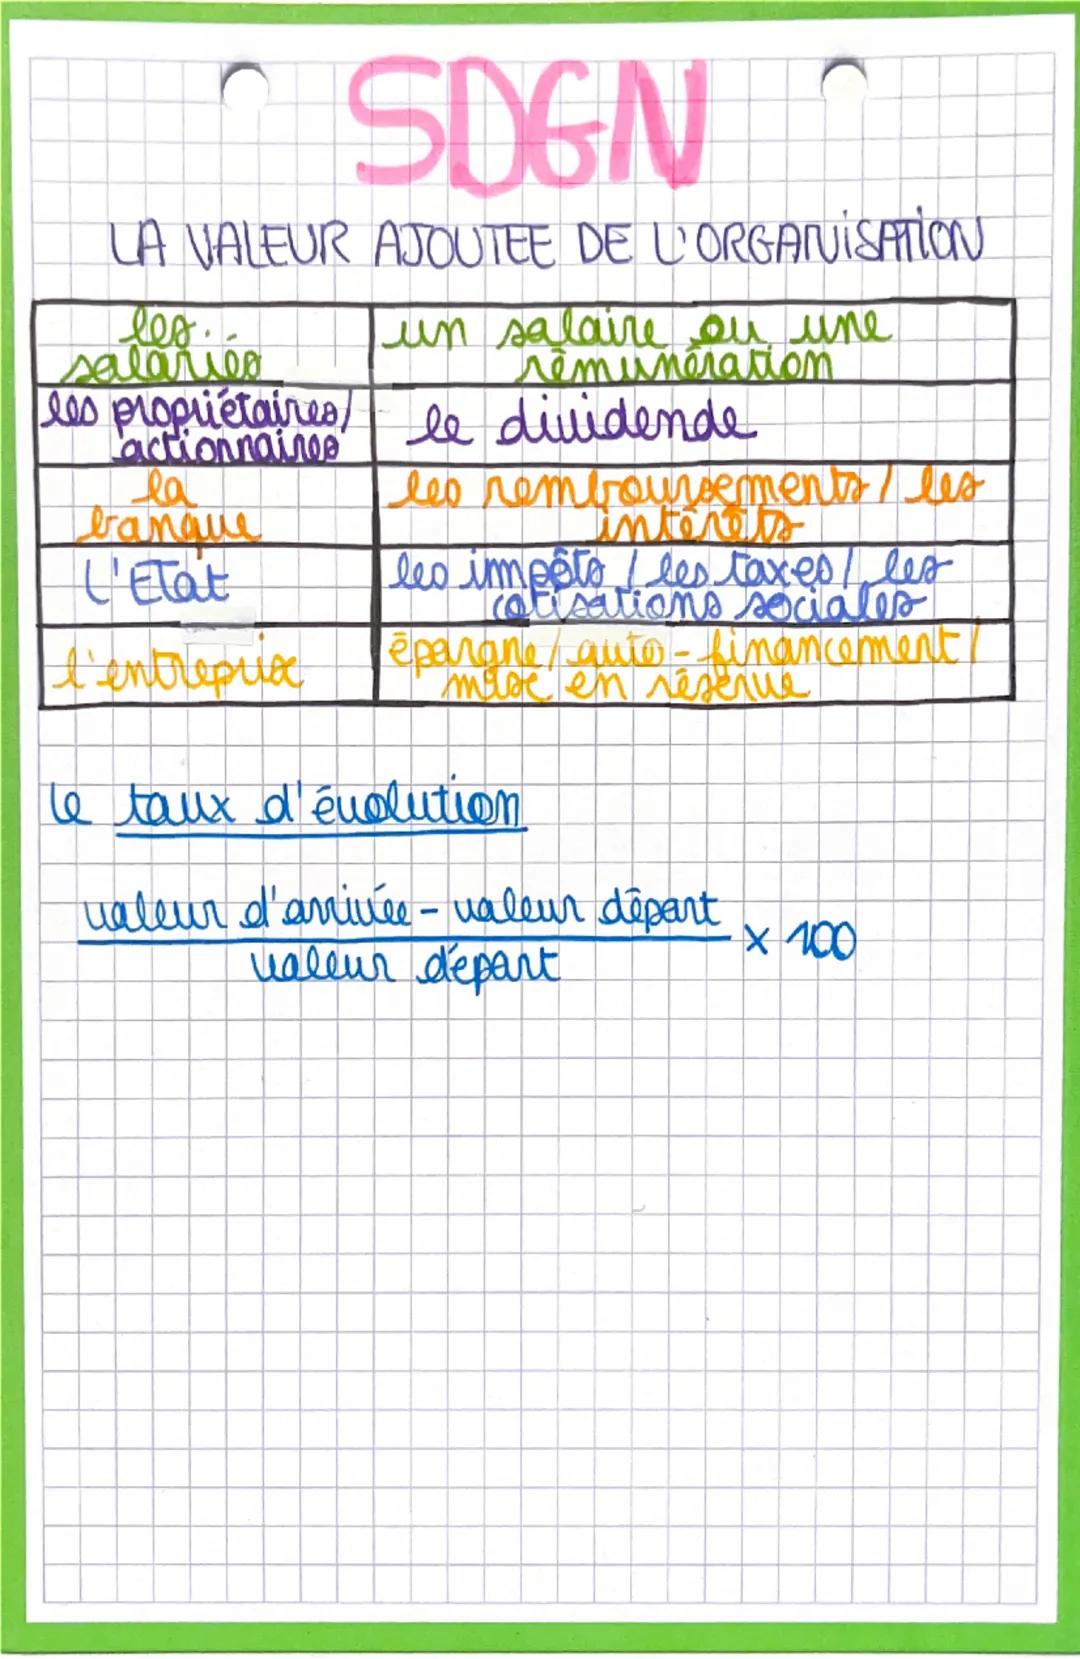 SDGN
LA VALEUR AJOUTEE DE L'ORGANiSATiON
les
salariés
un salaire ou une
rémunération
les propriétaires/
actionnaires
le dividende
la
banque
les remboursements / les
intérêts
L'Etat
les impôts / les taxes / les
cotisations sociales
l'entreprise
épargne / auto-financement /
mise en réserve
le taux d'évolution
valeur d'arrivée - valeur départ
valeur départ
x 100